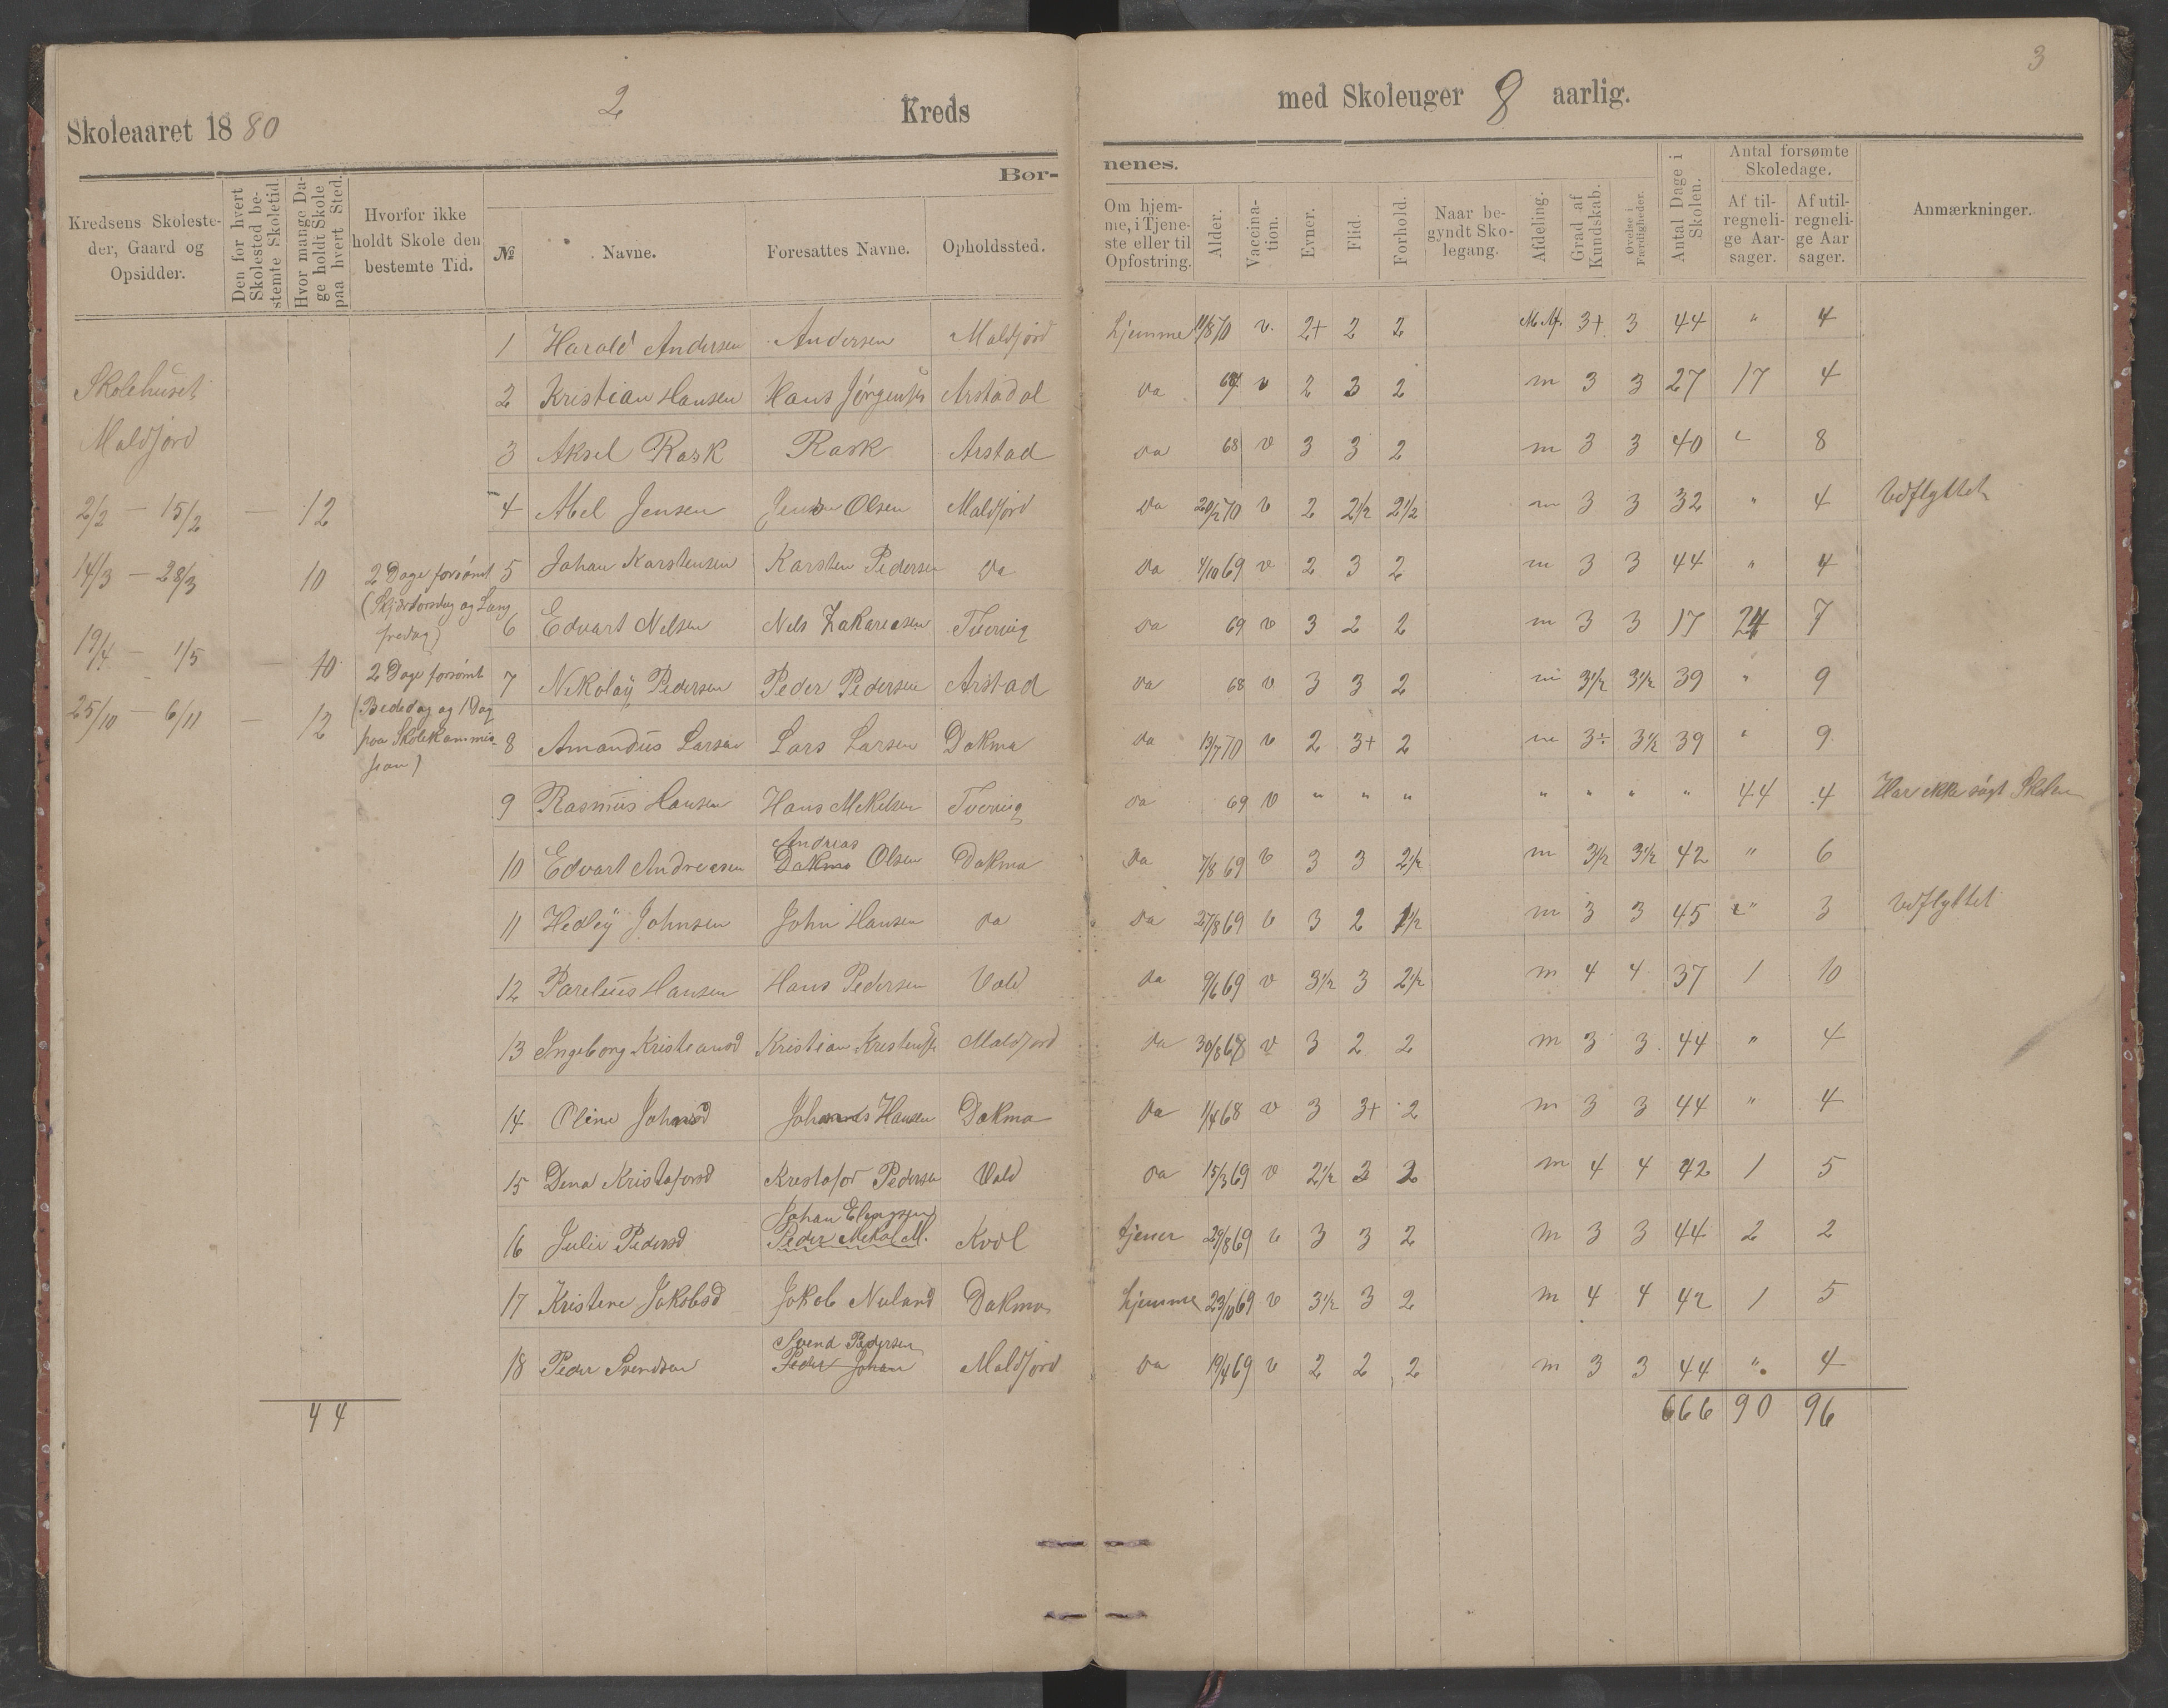 3
Skoleaaret 1880 2 Kreds med Skoleuger 8 aarlig.
Bør- nenes.
Kredsens Skoleste-
der, Gaard og
Opsidder.
Den for hvert
Skolested be-
stemte Skoletid.
Hvor mange Da-
ge holdt Skole
paa hvert Sted.
Hvorfor ikke
holdt Skole den
bestemte Tid.
№
Navne.
Foresattes Navne.
Opholdssted.
Om hjem-
me, i Tjene-
ste eller til
Opfostring.
Alder.
Vaccina-
tion.
Evner.
Flid.
Forhold.
Naar be-
gyndt Sko-
legang.
Afdeling.
Grad af
Kundskab.
Øvelse i
Færdigheder.
Antal Dage i
Skolen.
Antal forsømte
Skoledage.
Af til-
regneli-
ge Aar-
sager.
Af util-
regneli-
ge Aar
sager.
Anmærkninger.
Skolehuset
Maldfjord
2/2 — 15/2 — 12
14/3 — 28/3 10 2 Dage forsømt
(Skjærtorsdag og Lang
fredag)
19/4 — 1/5 — 10 2 Dage forsømt
(Bededag og 1 Dag
paa Skolekommis-
sion)
25/10 — 6/11 — 12
44
1 Harald Andersen Andersen Maldfjord hjemme 11/8 70 v. 2+ 2 2 M. Af. 3+ 3 44 " 4
2 Kristian Hansen Hans Jørgensen Arstadal da v 2 3 2 m 3 3 27 17 4
3 Aksel Rask Rask Arstad da 68 v 3 3 2 m 3 3 40 " 8
4 Abel Jensen Olsen Maldfjord da 20/2 70 v 2 2½ 2½ m 3 3 32 " 4 Udflyttet
5 Johan Karstensen Karsten Pedersen da da 4/10 69 v 2 3 2 m 3 3 44 " 4
6 Edvart Nelsen Nels Zakariasen Tverving da 69 v 3 2 2 m 3 3 17 24 7
7 Nikolaÿ Pedersen Peder Pedersen Arstad da 68 v 3 3 2 m 3½ 3½ 39 " 9
8 Amandus Larsen Lars Larsen Dakma da 13/7 70 v 2 3+ 2 m 3÷ 3½ 39 " 9
9 Rasmus Hansen Hans Mekelsen Tverving da 69 v " " " " " " " 44 4 Har ikke søgt Skolen
10 Edvart Andreasen Andreas Dakma Olsen Dakma da 7/8 69 v 3 3 2½ m 3½ 3½ 42 " 6
11 Hedleÿ Johnsen John Hansen da da 27/8 69 v 3 2 1½ m 3 3 45 " 3 Udflyttet
12 Parelius Hansen Hans Pedersen Vold da 9/6 69 v 3½ 3 2½ m 4 4 37 1 10
13 Ingeborg Kristiansd Kristian Kristensen Maldfjord da 30/8 68 v 3 2 2 m 3 3 44 " 4
14 Oline Johansd Johannes Hansen Dakma da 1/4 68 v 3 3+ 2 m 3 3 44 " 4
15 Dina Kristofersd Krestofor Pedersen Vold da 15/3 69 v 2½ 3 2 m 4 4 42 1 5
16 Julie Pedersd Johan Peder Mekal M. Kvol tjener 29/8 69 v 3 3 2 m 3 3 44 2 2
17 Kristene Jakobsd Jakob Nuland Dakma hjemme 23/10 69 v 3½ 3 2 m 4 4 42 1 5
18 Peder Svendsen Svend Pedersen Peder Johan Maldfjord da 19/4 69 v 2 2 2 m 3 3 44 " 4
666 90 96